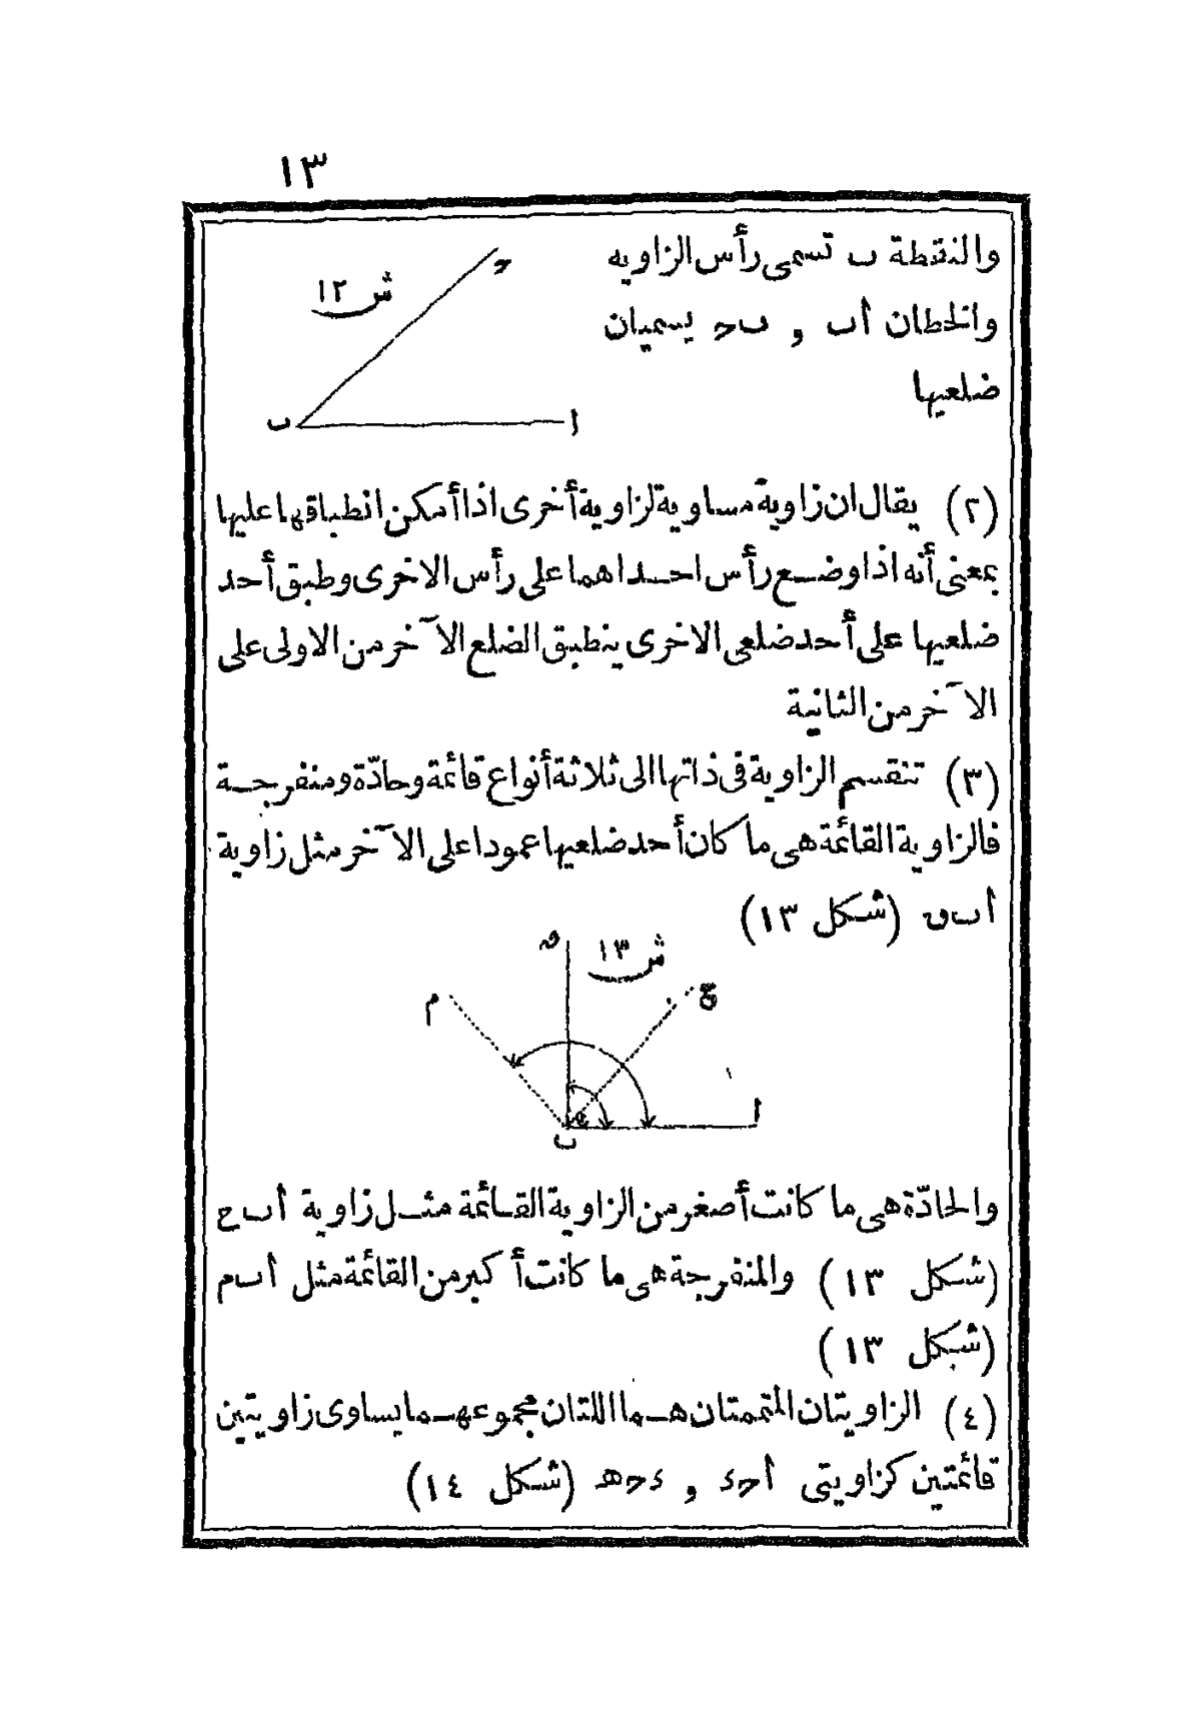 ١٣
والنقطة ب تسمى رأس الزاويه
والخطان أب و بح يسميان
ضلعيها
ش ١٢
ح
ب
ا
(٢) يقال ان زاوية مساوية لزاوية أخرى اذا أمكن انطباقها عليها
بمعنى أنه اذا وضع رأس احداهما على رأس الاخرى وطبق أحد
ضلعيها على أحد ضلعى الاخرى ينطبق الضلع الآخر من الاولى على
الآخر من الثانية
(٣) تنقسم الزاوية فى ذاتها الى ثلاثة أنواع قائمة وحادّة ومنفرجة
فالزاوية القائمة هى ما كان أحد ضلعيها عمودا على الآخر مثل زاوية
أب‍ق (شكل ١٣)
ش ١٣
ق
ع
م
ا
ب
والحادّة هى ما كانت أصغر من الزاوية القائمة مثل زاوية أبع
(شكل ١٣) والمنفرجة هى ما كانت أكبر من القائمة مثل أبم
(شكل ١٣)
(٤) الزاويتان المتممتان هما اللتان مجموعهما يساوى زاويتين
قائمتين كزاويتى أحء و ءحھ (شكل ١٤)